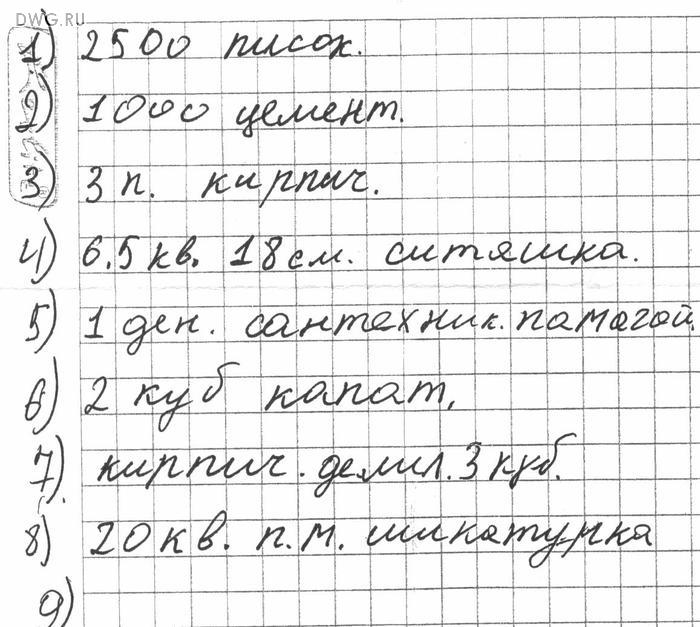 DWG.RU
1) 2500 писок.
2) 1000 цемент.
3) 3 п. кирпич.
4) 6.5 кв. 18 см. ситяшка.
5) 1 ден. сантехник. памагай.
6) 2 куб капат,
7) кирпич. делил. 3 куб.
8) 20 кв. п.м. шикатурка
9)